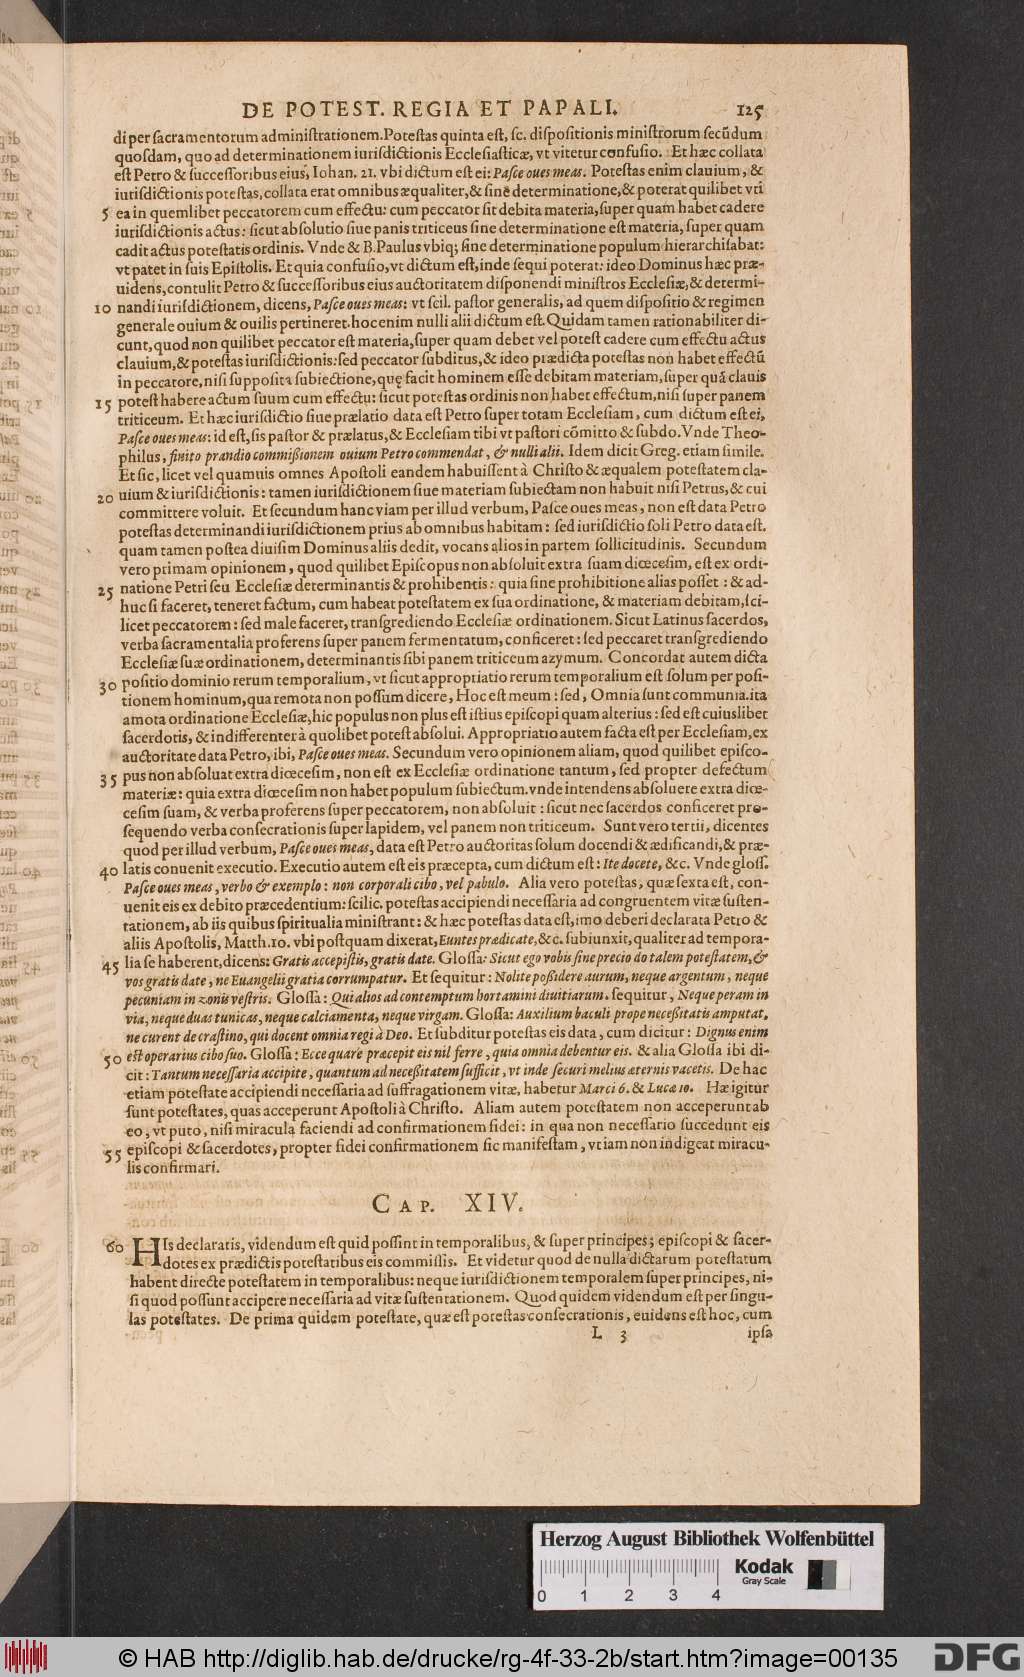 DE POTEST. REGIA ET PAPALI. 125
di per ſacramentorum adminiſtrationem. Poteſtas quinta eſt, ſc. diſpoſitionis miniſtrorum ſecũdum
quoſdam, quo ad determinationem iuriſdictionis Eccleſiaſticæ, vt vitetur confuſio. Et hæc collata
eſt Petro & ſucceſſoribus eius, Iohan. 21. vbi dictum eſt ei: Paſce oues meas. Poteſtas enim clauium, &
iuriſdictionis poteſtas, collata erat omnibus æqualiter, & ſinē determinatione, & poterat quilibet vti
5 ea in quemlibet peccatorem cum effectu: cum peccator ſit debita materia, ſuper quam habet cadere
iuriſdictionis actus: ſicut abſolutio ſiue panis triticeus ſine determinatione eſt materia, ſuper quam
cadit actus poteſtatis ordinis. Vnde & B. Paulus vbiq; ſine determinatione populum hierarchiſabat:
vt patet in ſuis Epiſtolis. Et quia confuſio, vt dictum eſt, inde ſequi poterat: ideo Dominus hæc præ-
uidens, contulit Petro & ſucceſſoribus eius auctoritatem diſponendi miniſtros Eccleſiæ, & determi-
10 nandi iuriſdictionem, dicens, Paſce oues meas: vt ſcil. paſtor generalis, ad quem diſpoſitio & regimen
generale ouium & ouilis pertineret. hoc enim nulli alii dictum eſt. Quidam tamen rationabiliter di-
cunt, quod non quilibet peccator eſt materia, ſuper quam debet vel poteſt cadere cum effectu actus
clauium, & poteſtas iuriſdictionis: ſed peccator ſubditus, & ideo prædicta poteſtas non habet effectũ
in peccatore, niſi ſuppoſita ſubiectione, quę facit hominem eſſe debitam materiam, ſuper quā clauis
15 poteſt habere actum ſuum cum effectu: ſicut poteſtas ordinis non habet effectum, niſi ſuper panem
triticeum. Et hæc iuriſdictio ſiue prælatio data eſt Petro ſuper totam Eccleſiam, cum dictum eſt ei,
Paſce oues meas: id eſt, ſis paſtor & prælatus, & Eccleſiam tibi vt paſtori cōmitto & ſubdo. Vnde Theo-
philus, finito prandio commißionem ouium Petro commendat, & nulli alii. Idem dicit Greg. etiam ſimile.
Et ſic, licet vel quamuis omnes Apoſtoli eandem habuiſſent à Chriſto & æqualem poteſtatem cla-
20 uium & iuriſdictionis: tamen iuriſdictionem ſiue materiam ſubiectam non habuit niſi Petrus, & cui
committere voluit. Et ſecundum hanc viam per illud verbum, Paſce oues meas, non eſt data Petro
poteſtas determinandi iuriſdictionem prius ab omnibus habitam: ſed iuriſdictio ſoli Petro data eſt.
quam tamen poſtea diuiſim Dominus aliis dedit, vocans alios in partem ſollicitudinis. Secundum
vero primam opinionem, quod quilibet Epiſcopus non abſoluit extra ſuam diœceſim, eſt ex ordi-
25 natione Petri ſeu Eccleſiæ determinantis & prohibentis: quia ſine prohibitione alias poſſet: & ad-
huc ſi faceret, teneret factum, cum habeat poteſtatem ex ſua ordinatione, & materiam debitam, ſci-
licet peccatorem: ſed male faceret, tranſgrediendo Eccleſiæ ordinationem. Sicut Latinus ſacerdos,
verba ſacramentalia proferens ſuper panem fermentatum, conficeret: ſed peccaret tranſgrediendo
Eccleſiæ ſuæ ordinationem, determinantis ſibi panem triticeum azymum. Concordat autem dicta
30 poſitio dominio rerum temporalium, vt ſicut appropriatio rerum temporalium eſt ſolum per poſi-
tionem hominum, qua remota non poſſum dicere, Hoc eſt meum: ſed, Omnia ſunt communia. ita
amota ordinatione Eccleſiæ, hic populus non plus eſt iſtius epiſcopi quam alterius: ſed eſt cuiuslibet
ſacerdotis, & indifferenter à quolibet poteſt abſolui. Appropriatio autem facta eſt per Eccleſiam, ex
auctoritate data Petro, ibi, Paſce oues meas. Secundum vero opinionem aliam, quod quilibet epiſco-
35 pus non abſoluat extra diœceſim, non eſt ex Eccleſiæ ordinatione tantum, ſed propter defectum
materiæ: quia extra diœceſim non habet populum ſubiectum. vnde intendens abſoluere extra diœ-
ceſim ſuam, & verba proferens ſuper peccatorem, non abſoluit: ſicut nec ſacerdos conficeret pro-
ſequendo verba conſecrationis ſuper lapidem, vel panem non triticeum. Sunt vero tertii, dicentes
quod per illud verbum, Paſce oues meas, data eſt Petro auctoritas ſolum docendi & ædificandi, & præ-
40 latis conuenit executio. Executio autem eſt eis præcepta, cum dictum eſt: Ite docete, &c. Vnde gloſſ.
Paſce oues meas, verbo & exemplo: non corporali cibo, vel pabulo. Alia vero poteſtas, quæ ſexta eſt, con-
uenit eis ex debito præcedentium: ſcilic. poteſtas accipiendi neceſſaria ad congruentem vitæ ſuſten-
tationem, ab iis quibus ſpiritualia miniſtrant: & hæc poteſtas data eſt, imo deberi declarata Petro &
aliis Apoſtolis, Matth. 10. vbi poſtquam dixerat, Euntes prædicate, &c. ſubiunxit, qualiter ad tempora-
45 lia ſe haberent, dicens: Gratis accepiſtis, gratis date. Gloſſa: Sicut ego vobis ſine precio do talem poteſtatem, &
vos gratis date, ne Euangelii gratia corrumpatur. Et ſequitur: Nolite poßidere aurum, neque argentum, neque
pecuniam in zonis veſtris. Gloſſa: Qui alios ad contemptum hortamini diuitiarum. ſequitur, Neque peram in
via, neque duas tunicas, neque calciamenta, neque virgam. Gloſſa: Auxilium baculi prope neceßitatis amputat,
ne curent de craſtino, qui docent omnia regi à Deo. Et ſubditur poteſtas eis data, cum dicitur: Dignus enim
50 eſt operarius cibo ſuo. Gloſſa: Ecce quare præcepit eis nil ferre, quia omnia debentur eis. & alia Gloſſa ibi di-
cit: Tantum neceſſaria accipite, quantum ad neceßitatem ſufficit, vt inde ſecuri melius æternis vacetis. De hac
etiam poteſtate accipiendi neceſſaria ad ſuffragationem vitæ, habetur Marci 6. & Lucæ 10. Hæ igitur
ſunt poteſtates, quas acceperunt Apoſtoli à Chriſto. Aliam autem poteſtatem non acceperunt ab
eo, vt puto, niſi miracula faciendi ad confirmationem fidei: in qua non neceſſario ſuccedunt eis
55 epiſcopi & ſacerdotes, propter fidei confirmationem ſic manifeſtam, vt iam non indigeat miracu-
lis confirmari.
CAP. XIV.
60 HIs declaratis, videndum eſt quid poſſint in temporalibus, & ſuper principes; epiſcopi & ſacer-
dotes ex prædictis poteſtatibus eis commiſſis. Et videtur quod de nulla dictarum poteſtatum
habent directe poteſtatem in temporalibus: neque iuriſdictionem temporalem ſuper principes, ni-
ſi quod poſſunt accipere neceſſaria ad vitæ ſuſtentationem. Quod quidem videndum eſt per ſingu-
las poteſtates. De prima quidem poteſtate, quæ eſt poteſtas conſecrationis, euidens eſt hoc, cum
L 3 ipſa
Herzog August Bibliothek Wolfenbüttel
Kodak
Gray Scale
0 1 2 3 4
© HAB http://diglib.hab.de/drucke/rg-4f-33-2b/start.htm?image=00135
DFG